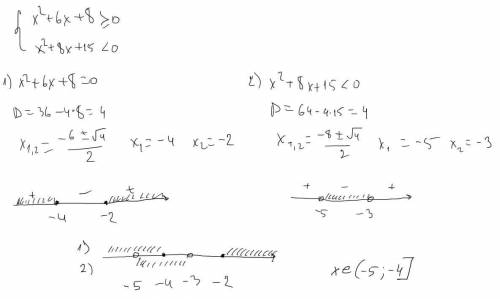 { x²+6x+8≥0
x²+8x+15<0
1) x²+6x+8=0
D=36-4·8=4
x₁,₂=(-6±√4)/2 x₁=-4 x₂=-2
+ - +
-4 -2
2) x²+8x+15<0
D=64-4·15=4
x₁,₂=(-8±√4)/2 x₁=-5 x₂=-3
+ - +
-5 -3
1)
2)
-5 -4 -3 -2
x∈(-5;-4]